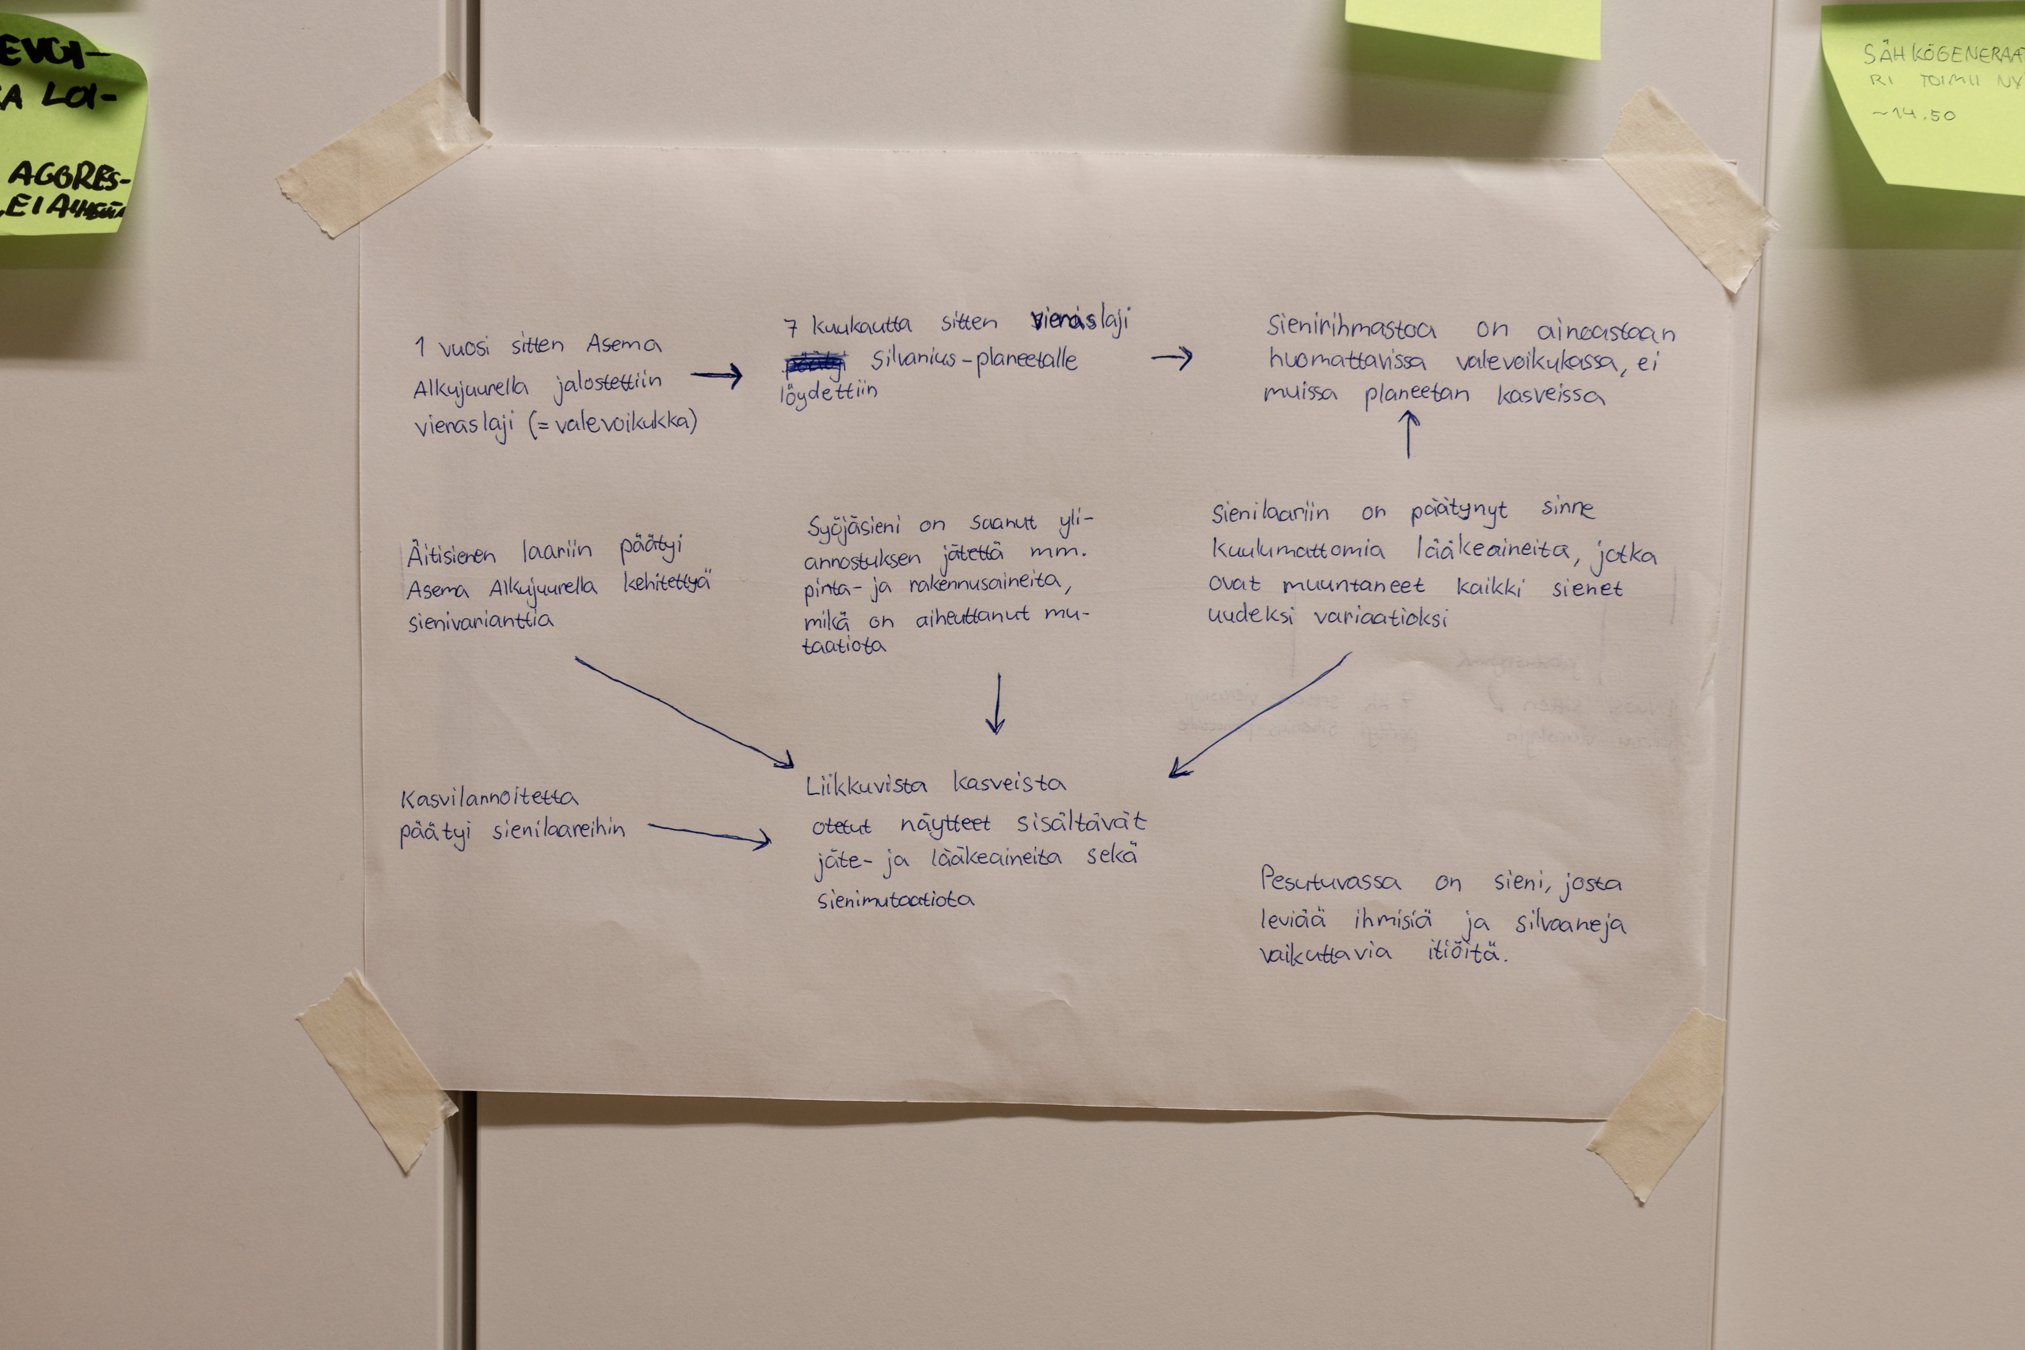 EVOI-
KA LOI-
AGGRES-
SÄHKÖGENERAAT
RI TOIMII NY
~14.50
1 vuosi sitten Asema
Alkujuurella jalostettiin
vieraslaji (= valevoikukka)
7 kuukautta sitten vieraslaji
päätyi Silvanius-planeetalle
löydettiin
Sienirihmastoa on ainoastaan
huomattavissa valevoikukassa, ei
muissa planeetan kasveissa
Äitisienen laariin päätyi
Asema Alkujuurella kehitettyä
sienivarianttia
Syöjäsieni on saanut yli-
annostuksen jätettä mm.
pinta- ja rakennusaineita,
mikä on aiheuttanut mu-
taatiota
Sienilaariin on päätynyt sinne
kuulumattomia lääkeaineita, jotka
ovat muuntaneet kaikki sienet
uudeksi variaatioksi
Kasvilannoitetta
päätyi sienilaareihin
Liikkuvista kasveista
otetut näytteet sisältävät
jäte- ja lääkeaineita sekä
sienimutaatiota
Pesutuvassa on sieni, josta
leviää ihmisiä ja silvaaneja
vaikuttavia itiöitä.